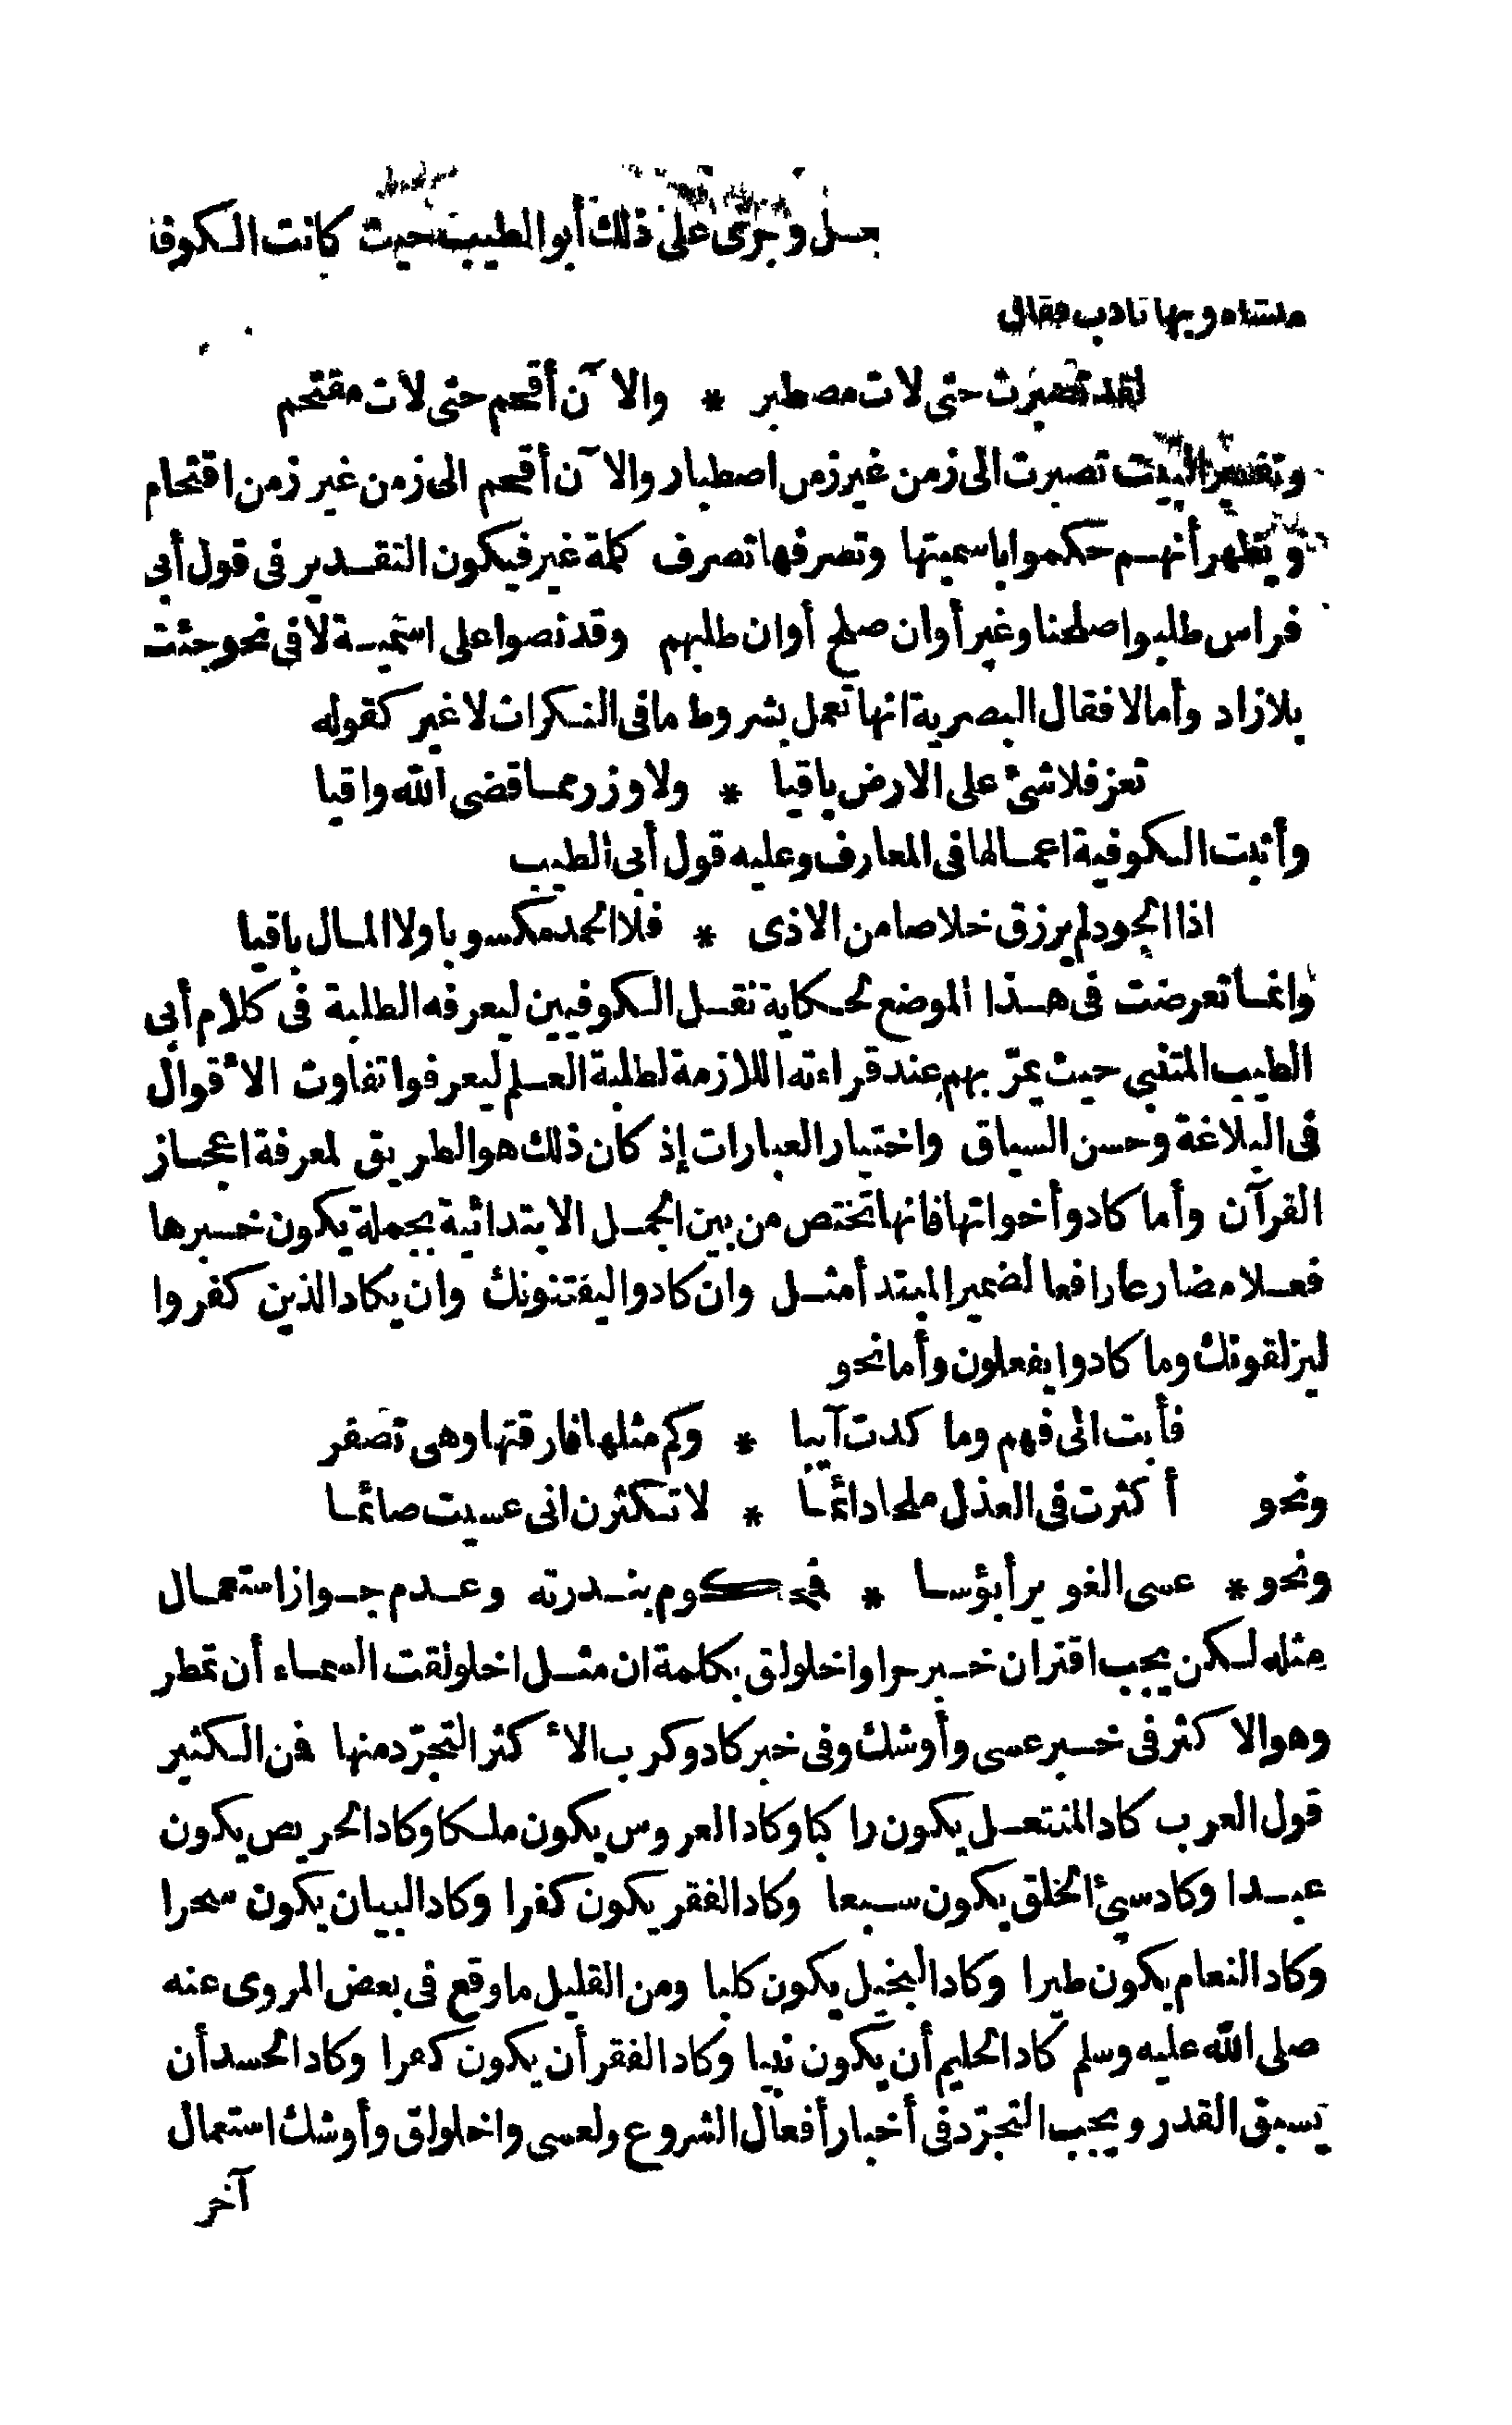 وجرى على ذلك أبو الطيب حيث كانت الكوفة
وبها تأدب فقال
لقد تصبرت حتى لات مصطبر * والآن أقحم حتى لات مقتحم
وتفسير البيت تصبرت الى زمن غير زمن اصطبار والآن أقحم الى زمن غير زمن اقتحام
ويظهر أنهم حكموا باسميتها وتصرفها تصرف كلمة غير فيكون التقدير فى قول أبى
فراس طلبوا صلحنا وغير أوان صلح أوان طلبهم وقد نصوا على اسمية لا فى نحو جئت
بلا زاد وأما لا فقال البصرية انها تعمل بشروط ما فى النكرات لا غير كقوله
تعز فلا شئ على الارض باقيا * ولا وزر مما قضى الله واقيا
وأثبت الكوفية اعمالها فى المعارف وعليه قول أبى الطيب
اذا الجود لم يرزق خلاصا من الاذى * فلا الحمد مكسوبا ولا المال باقيا
وانما تعرضت فى هذا الموضع لحكاية نقل الكوفيين ليعرفه الطلبة فى كلام أبى
الطيب المتنبى حيث يمرّ بهم عند قراءته اللازمة لطلبة العلم ليعرفوا تفاوت الأقوال
فى البلاغة وحسن السياق واختيار العبارات إذ كان ذلك هو الطريق لمعرفة اعجاز
القرآن وأما كاد وأخواتها فانها تختص من بين الجمل الابتدائية بجملة يكون خبرها
فعلا مضارعا رافعا لضمير المبتدأ مثل وان كادوا ليفتنونك وان يكاد الذين كفروا
ليزلقونك وما كادوا يفعلون وأما نحو
فأبت الى فهم وما كدت آيبا * وكم مثلها فارقتها وهى تصفر
ونحو أكثرت فى العذل ملحا دائما * لا تكثرن انى عسيت صائما
ونحو * عسى الغوير أبؤسا * فمحكوم بندرته وعدم جواز استعمال
مثله لكن يجب اقتران خبر حرا واخلولق بكلمة ان مثل اخلولقت السماء أن تمطر
وهو الاكثر فى خبر عسى وأوشك وفى خبر كاد وكرب الأكثر التجرّد منها فمن الكثير
قول العرب كاد المنتعل يكون راكبا وكاد العروس يكون ملكا وكاد الحريص يكون
عبدا وكاد سيئ الخلق يكون سبعا وكاد الفقر يكون كفرا وكاد البيان يكون سحرا
وكاد النعام يكون طيرا وكاد البخيل يكون كلبا ومن القليل ما وقع فى بعض المروى عنه
صلى الله عليه وسلم كاد الحليم أن يكون نبيا وكاد الفقر أن يكون كفرا وكاد الحسد أن
يسبق القدر ويجب التجرّد فى أخبار أفعال الشروع ولعسى واخلولق وأوشك استعمال
آخر